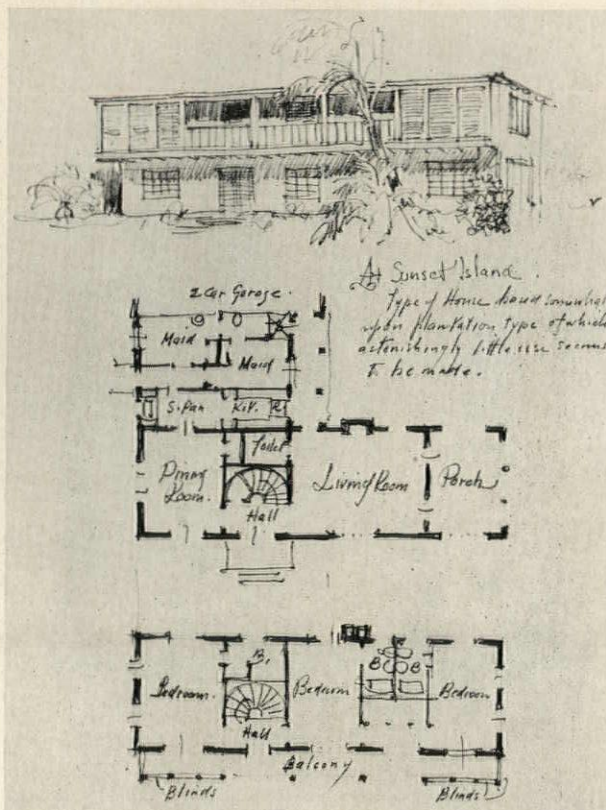 At Sunset Island.
Type of House based somewhat
upon plantation type of which
astonishingly little use seems
to be made.
2 Car Garage.
Maid
Maid
S. Pan
Kit.
Toilet
Dining
Room.
Living Room
Porch
Hall
B.
B B
Bedroom.
Bedroom
Bedroom
Hall
Balcony
Blinds
Blinds